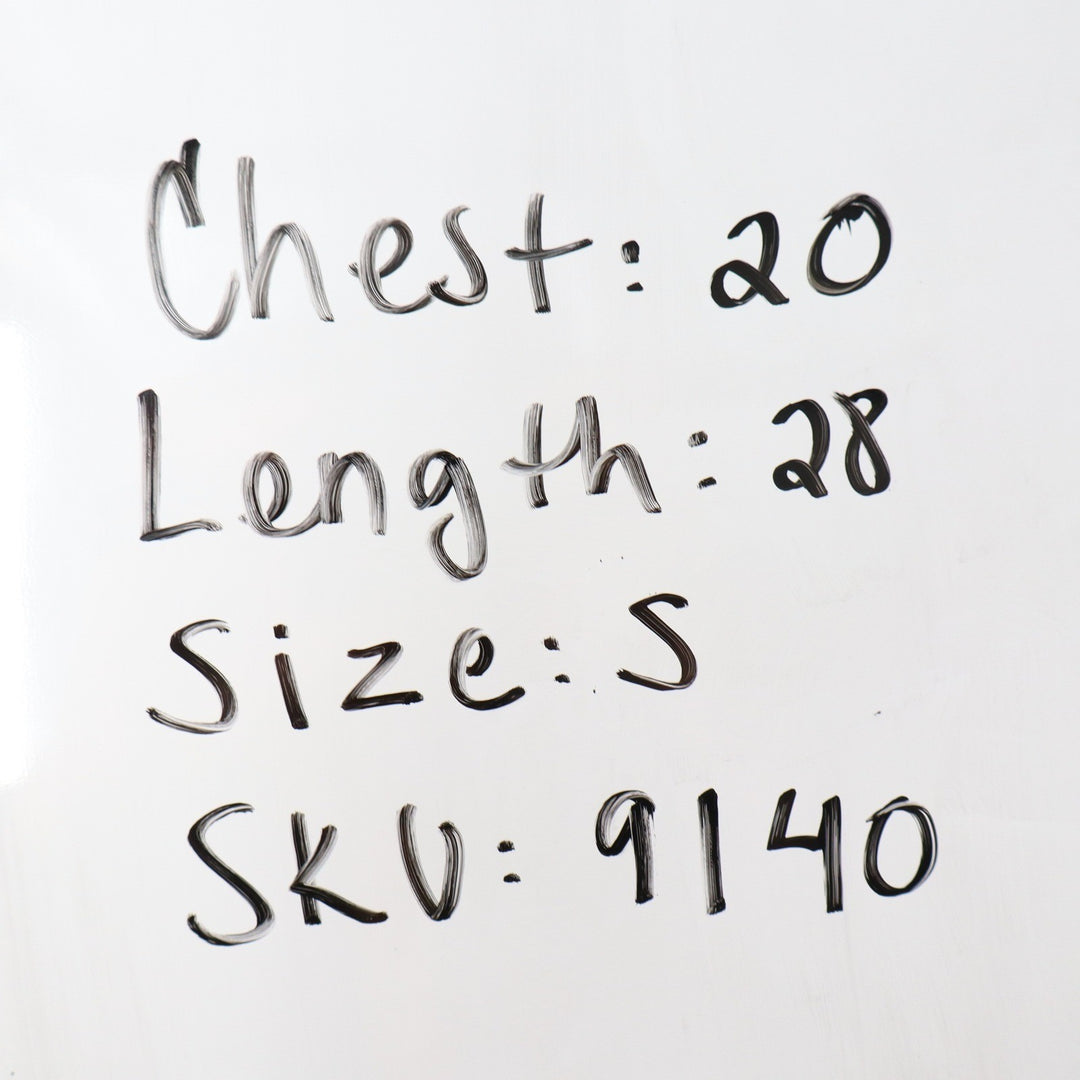 Chest: 20
Length: 28
Size: S
SKU: 9140